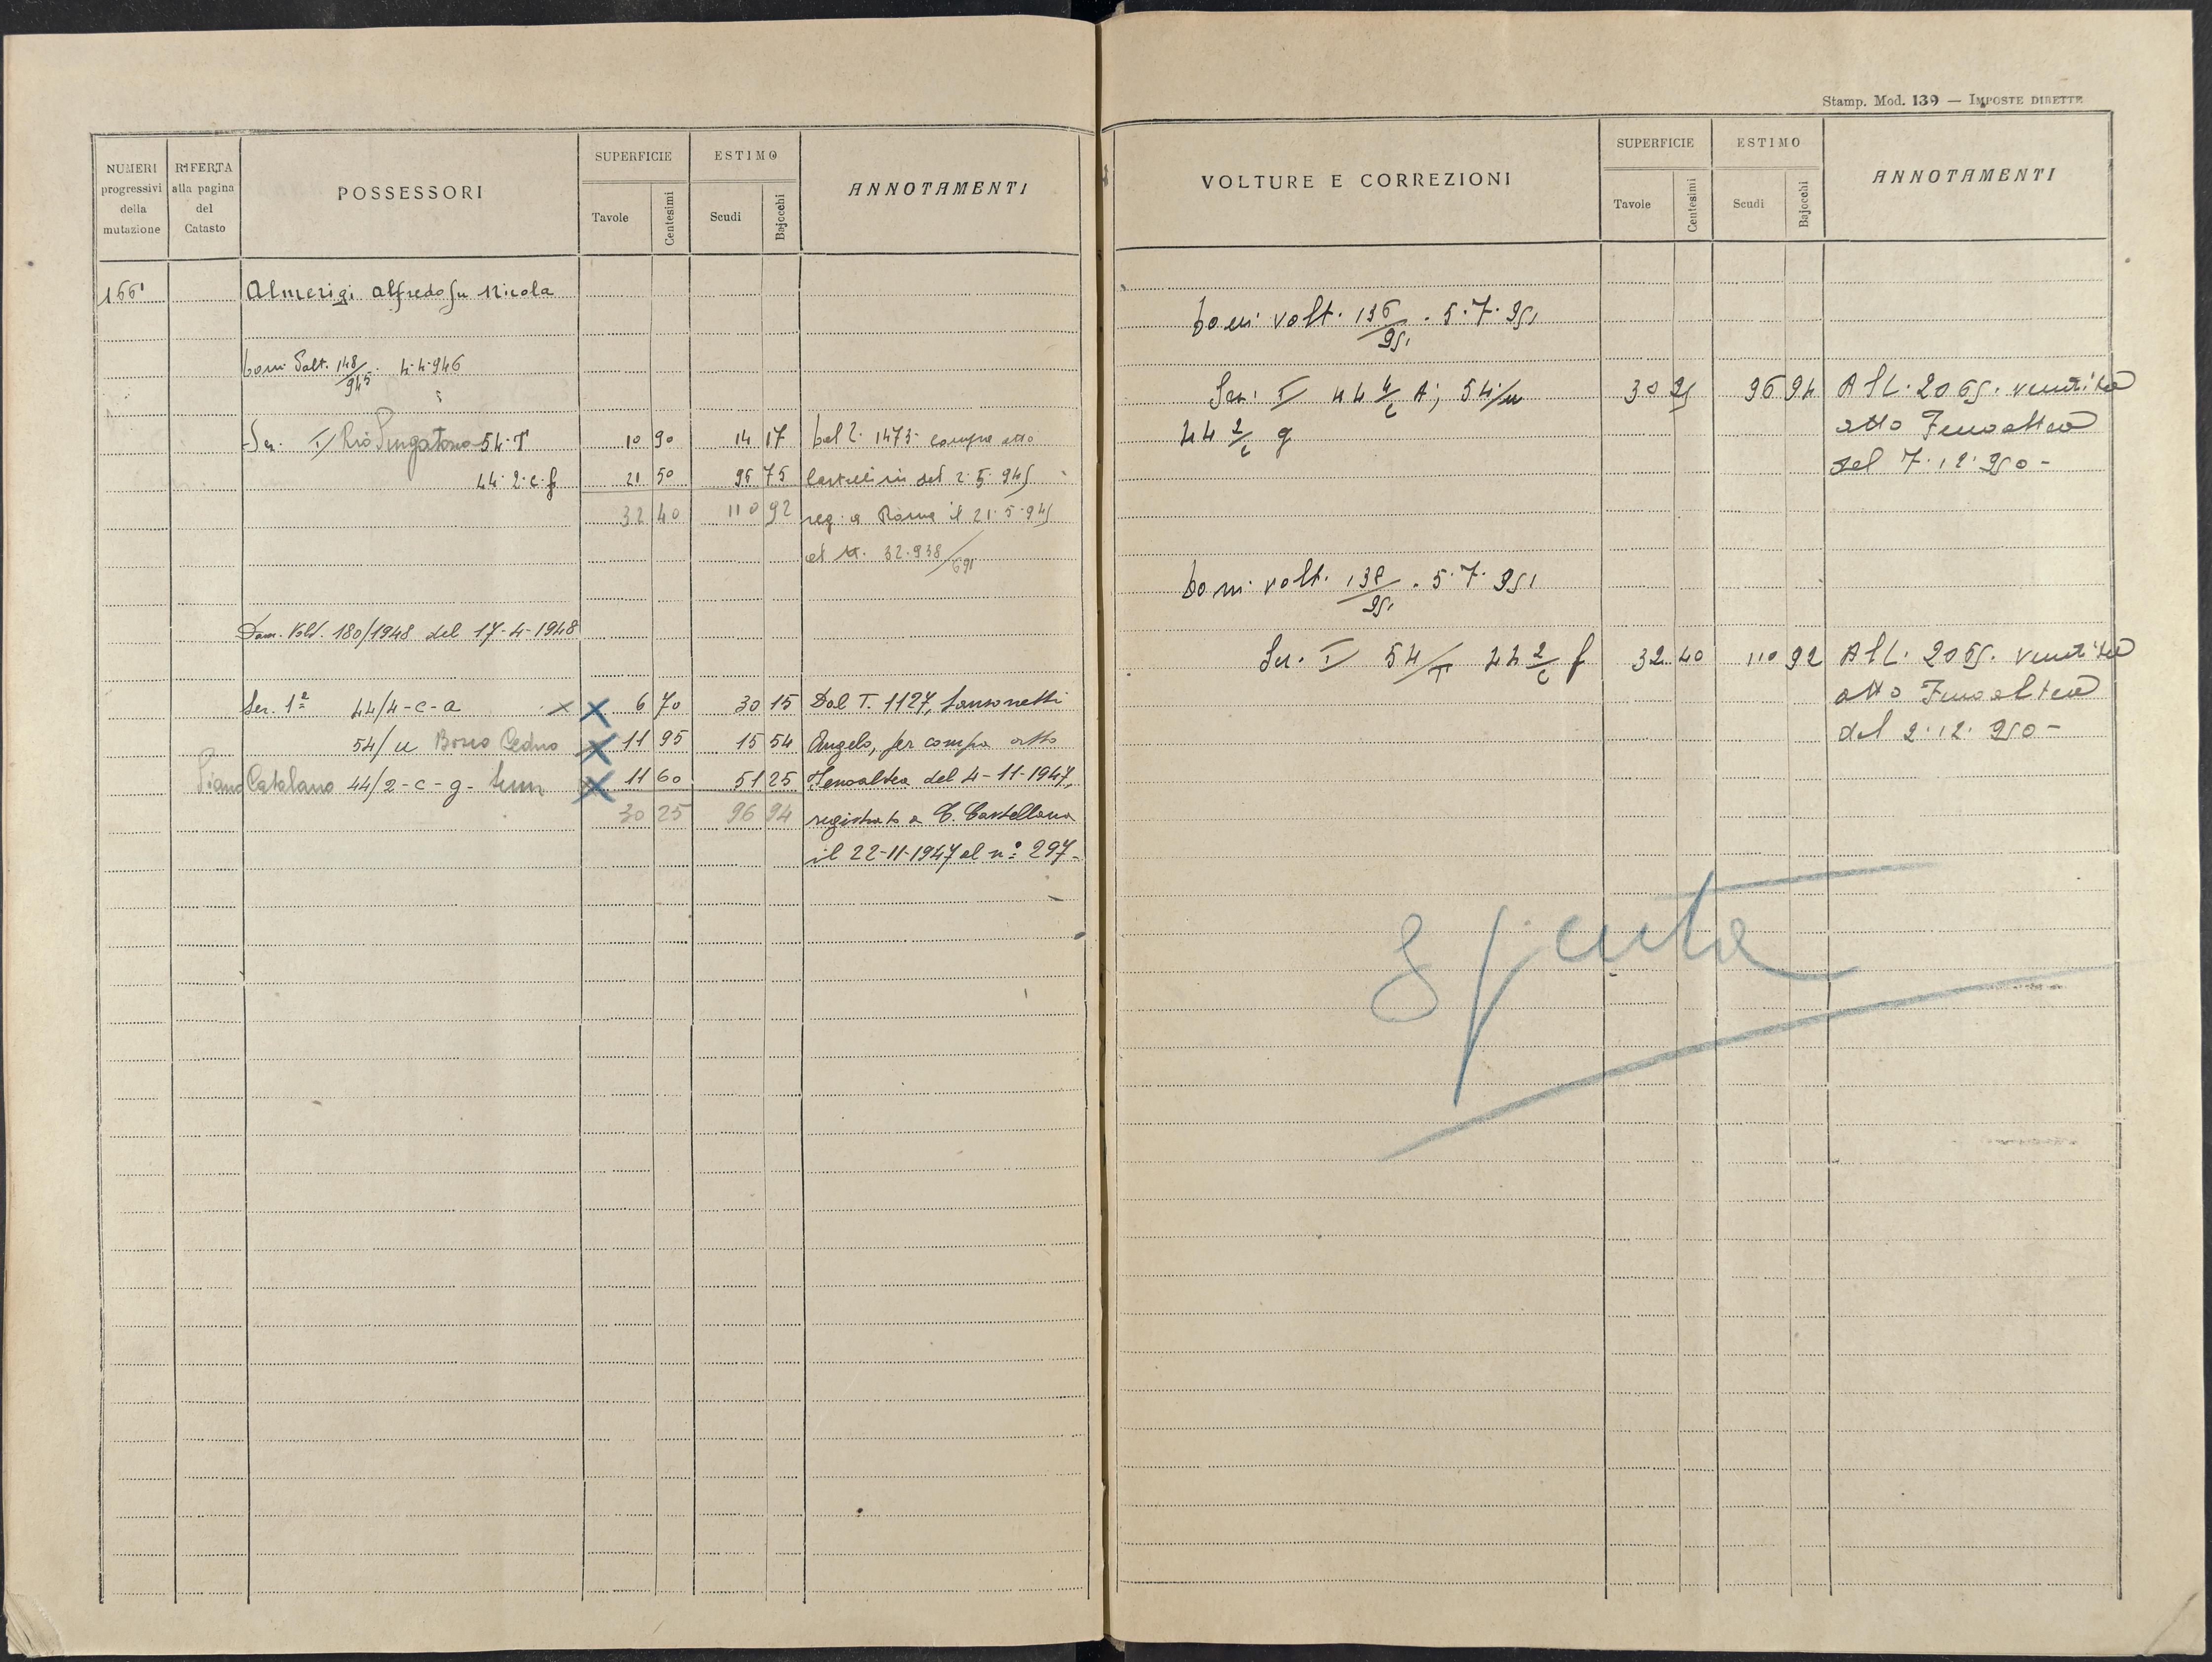 NUMERI progressivi della mutazione
RIFERTA alla pagina del Catasto
POSSESSORI
SUPERFICIE
Tavole
Centesimi
ESTIMO
Scudi
Bajocchi
ANNOTAMENTI
1661
Almerigi Alfredo fu Nicola
148/945 4-4-946
Sez. I Rio Purgatorio 54-T 10 90 14 17 Dal T. 1473 compra atto
44-2-c-f 21 50 96 75 del 2-5-945
32 40 110 92 reg. a Roma il 21-5-945
al N. 32.938/691
Dom. Volt. 180/1948 del 17-4-1948
Sez. 1ª 44/4-c-a x X 6 70 30 15 Dal T. 1127, Sansonetti
54/u Bosco Ceduo X 11 95 15 54 Angelo, per compa atto
Piano Catalano 44/2-c-g- Sem X 11 60 51 25 Fenoaltea del 4-11-1947,
30 25 96 94 registrato a C. Castellana
il 22-11-1947 al nº 297-
Stamp. Mod. 139 — IMPOSTE DIRETTE
VOLTURE E CORREZIONI
SUPERFICIE
Tavole
Centesimi
ESTIMO
Scudi
Bajocchi
ANNOTAMENTI
Dom. volt. 136/951 . 5.7.951
Sez. I 44 4/c A; 54/u 30 25 96 94 Al T. 2065. vendita
44 2/c g atto Fenoaltea
del 7.12.950-
Dom. volt. 138/951 . 5.7.951
Sez. I 54/T 44 2/c f 32 40 110 92 Al T. 2065. vendita
atto Fenoaltea
del 2.12.950-
Spenta